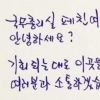 국무총리실 페친 여
안녕하세요?
기회 되는대로 이곳을
여러분과 소통하겠습